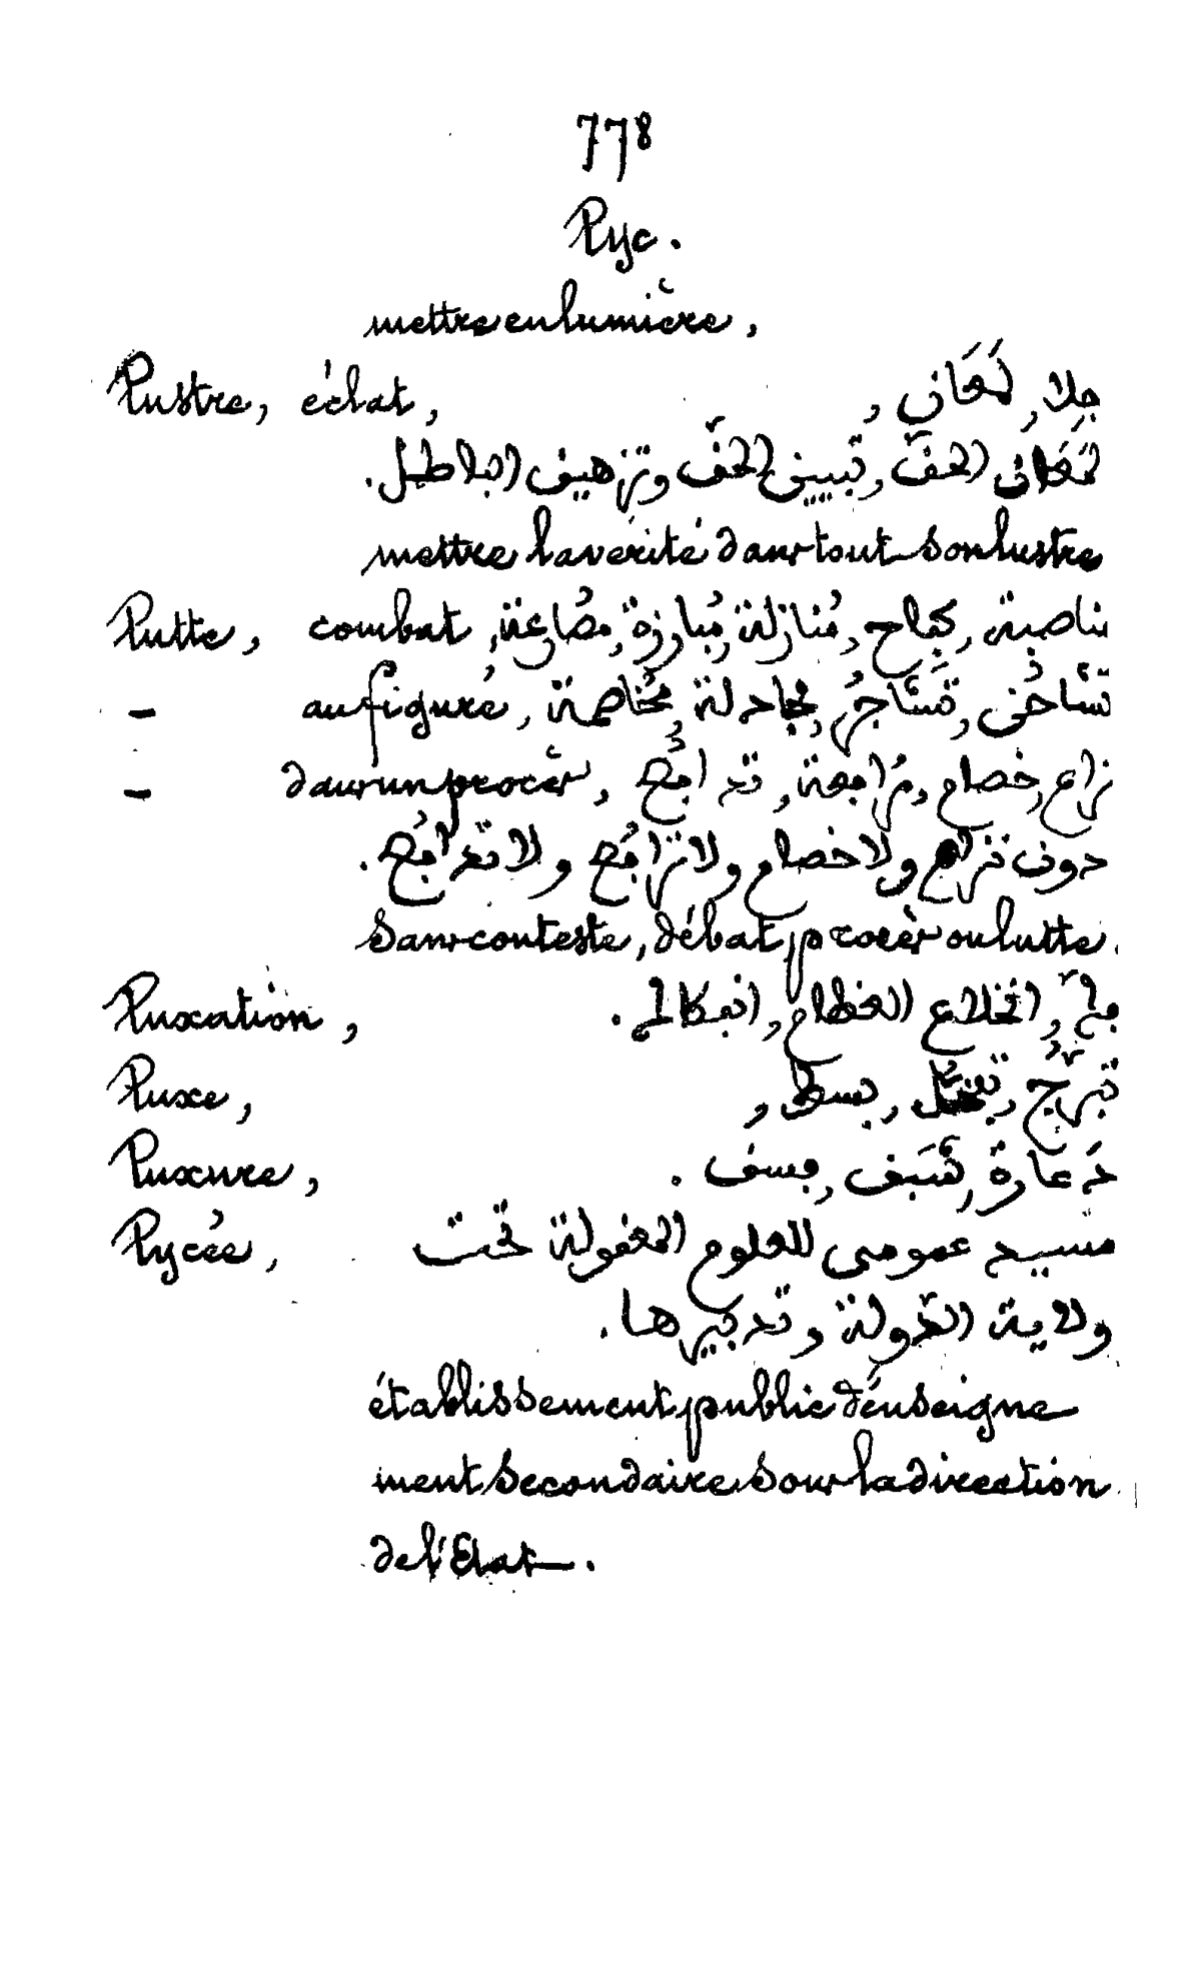 778
Lyc.
mettre en lumière,
Lustre, éclat, جلا, لَمَعَان,
لَمَعَان الحق, تبيين الحق وتزهيق الباطل.
mettre la vérité dans tout son lustre
Lutte, combat, مناصبة, كفاح, مُنازلة, مُبارزة, مُصارعة,
— au figuré, تَشَاحُن, تَشَاجُر, مجادلة, مُخاصمة
— dans un procès, نزاع, خصام, مُرافعة, تدافُع
دون نزاع ولا خصام ولا ترافُع ولا تدافُع.
sans conteste, débat, procès ou lutte.
Luxation, انخلاع العظام, انفكاك.
Luxe, تبرّج, بسط,
Luxure, دَعارة, شَبَق, فسق.
Lycée, مسيد عمومي للعلوم المعقولة تحت
ولاية الدولة وتدبيرها.
établissement public d'enseigne
ment secondaire sous la direction
de l'État.